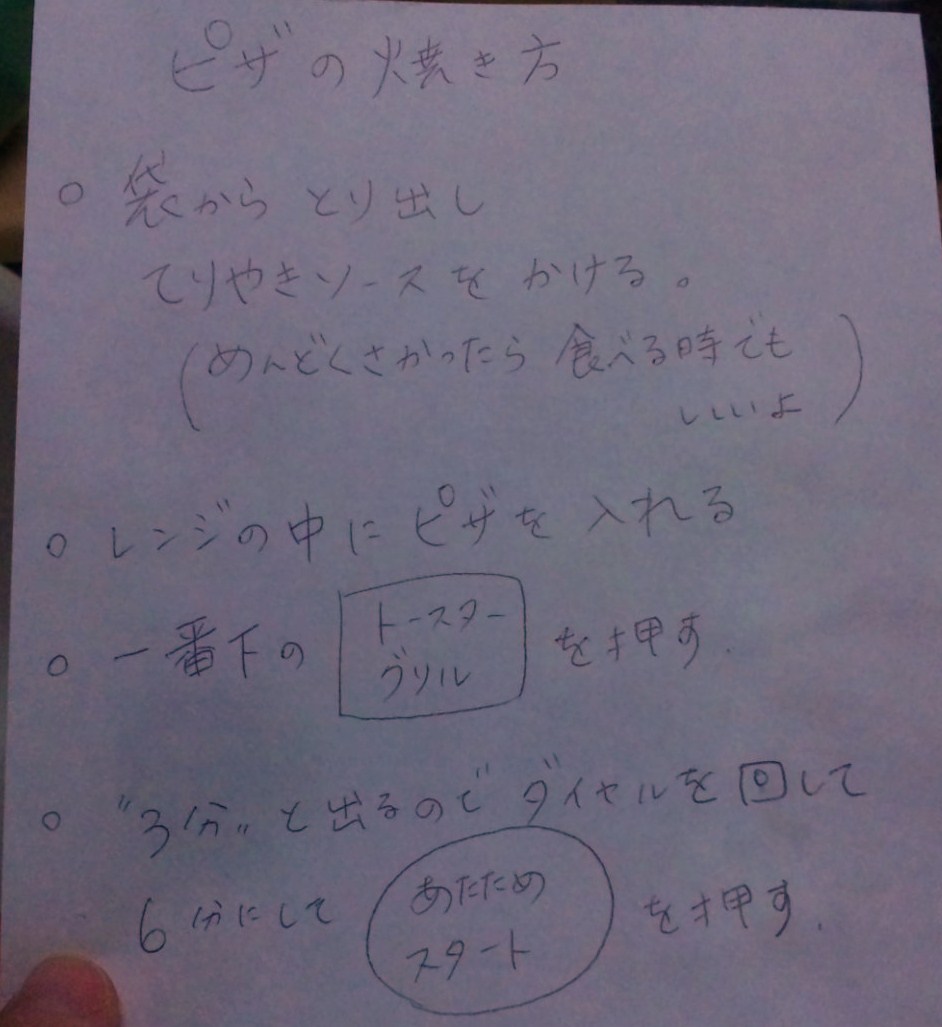 ピザの焼き方
○ 袋から とり出し
てりやきソースを かける。
(めんどくさかったら 食べる時でも
いいよ)
○ レンジの中に ピザを 入れる
○ 一番下の トースター グリル を押す.
○ "3分" と出るので ダイヤルを回して
6分にして あたため スタート を押す.